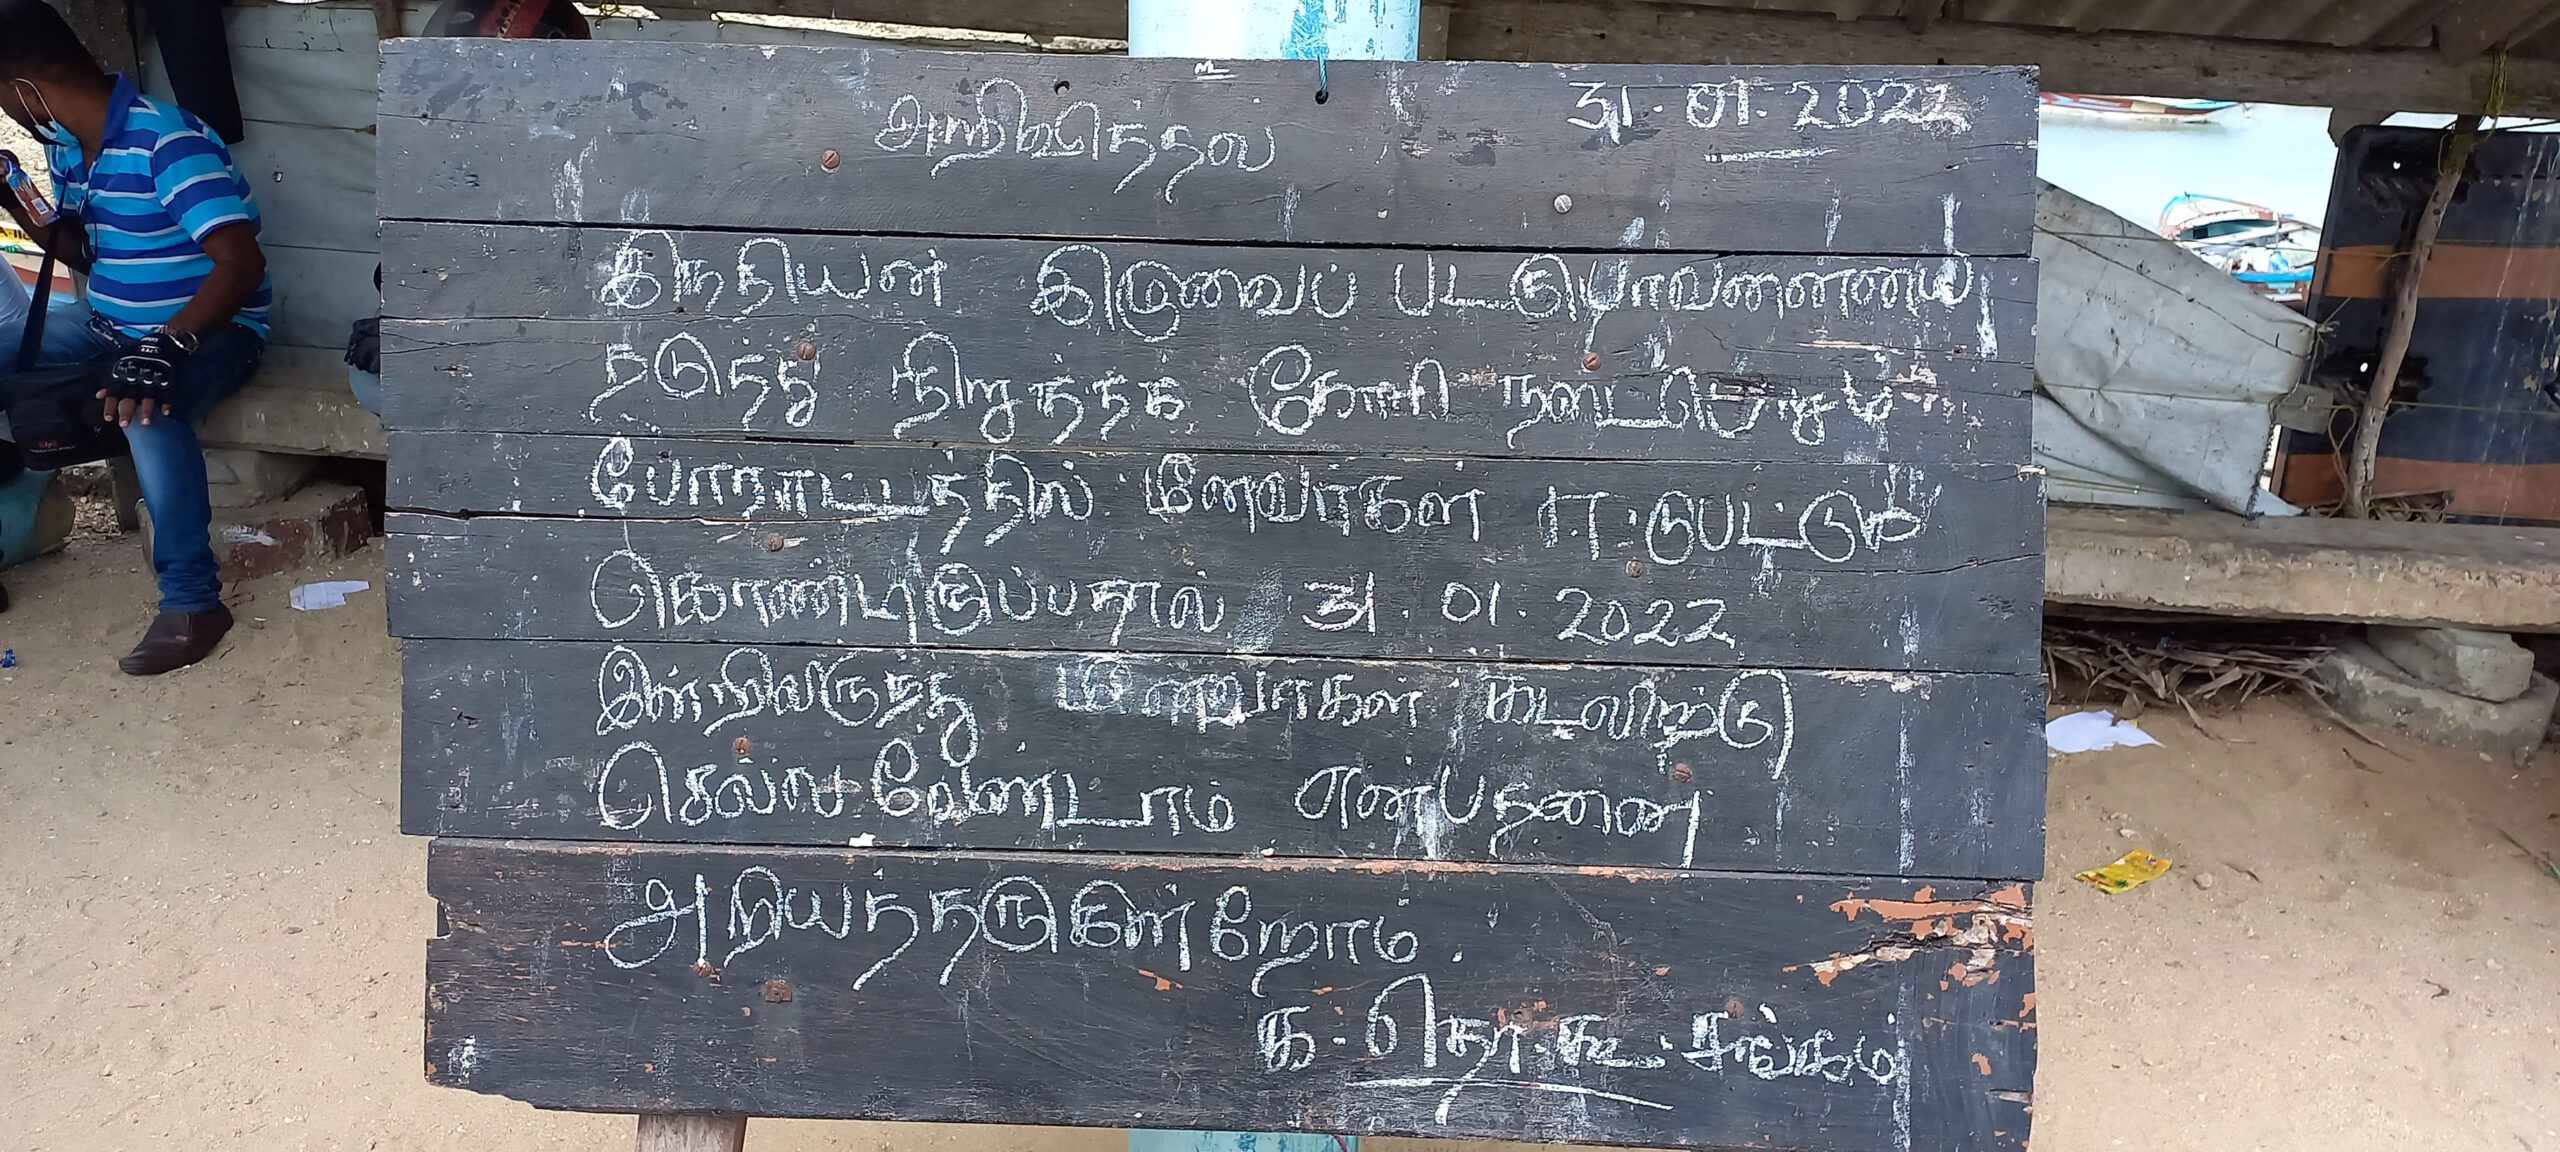 அறிவித்தல்
31.01.2022
இந்தியன் இழுவைப் படகு
தடுத்து நிறுத்தக கோரி நடைபெறும்
போராட்டத்தில் மீனவர்கள் ஈடுபட்டுக்
கொண்டிருப்பதால் 31.01.2022
இன்றிலிருந்து மீனவர்கள் கடலிற்கு
செல்ல வேண்டாம் என்பதனை
அறியத்தருகின்றோம்.
க.தொ.கூ.சங்கம்